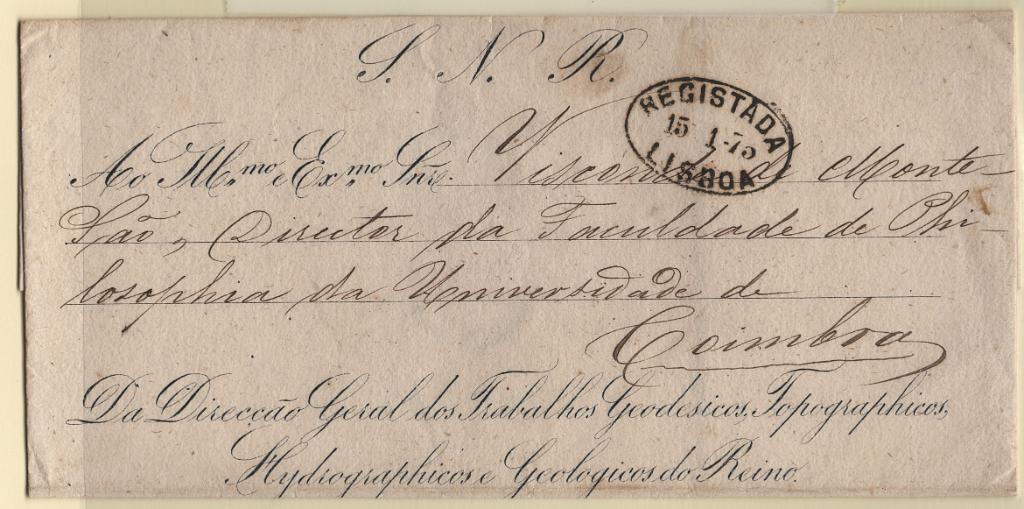 S. N. R.
REGISTADA
15 1-75
LISBOA
Ao Ill.mo e Ex.mo Snr. Visconde de Monte-
São, Director da Faculdade de Phi-
losophia da Universidade de
Coimbra
Da Direcção Geral dos Trabalhos Geodesicos, Topographicos,
Hydrographicos e Geologicos do Reino.